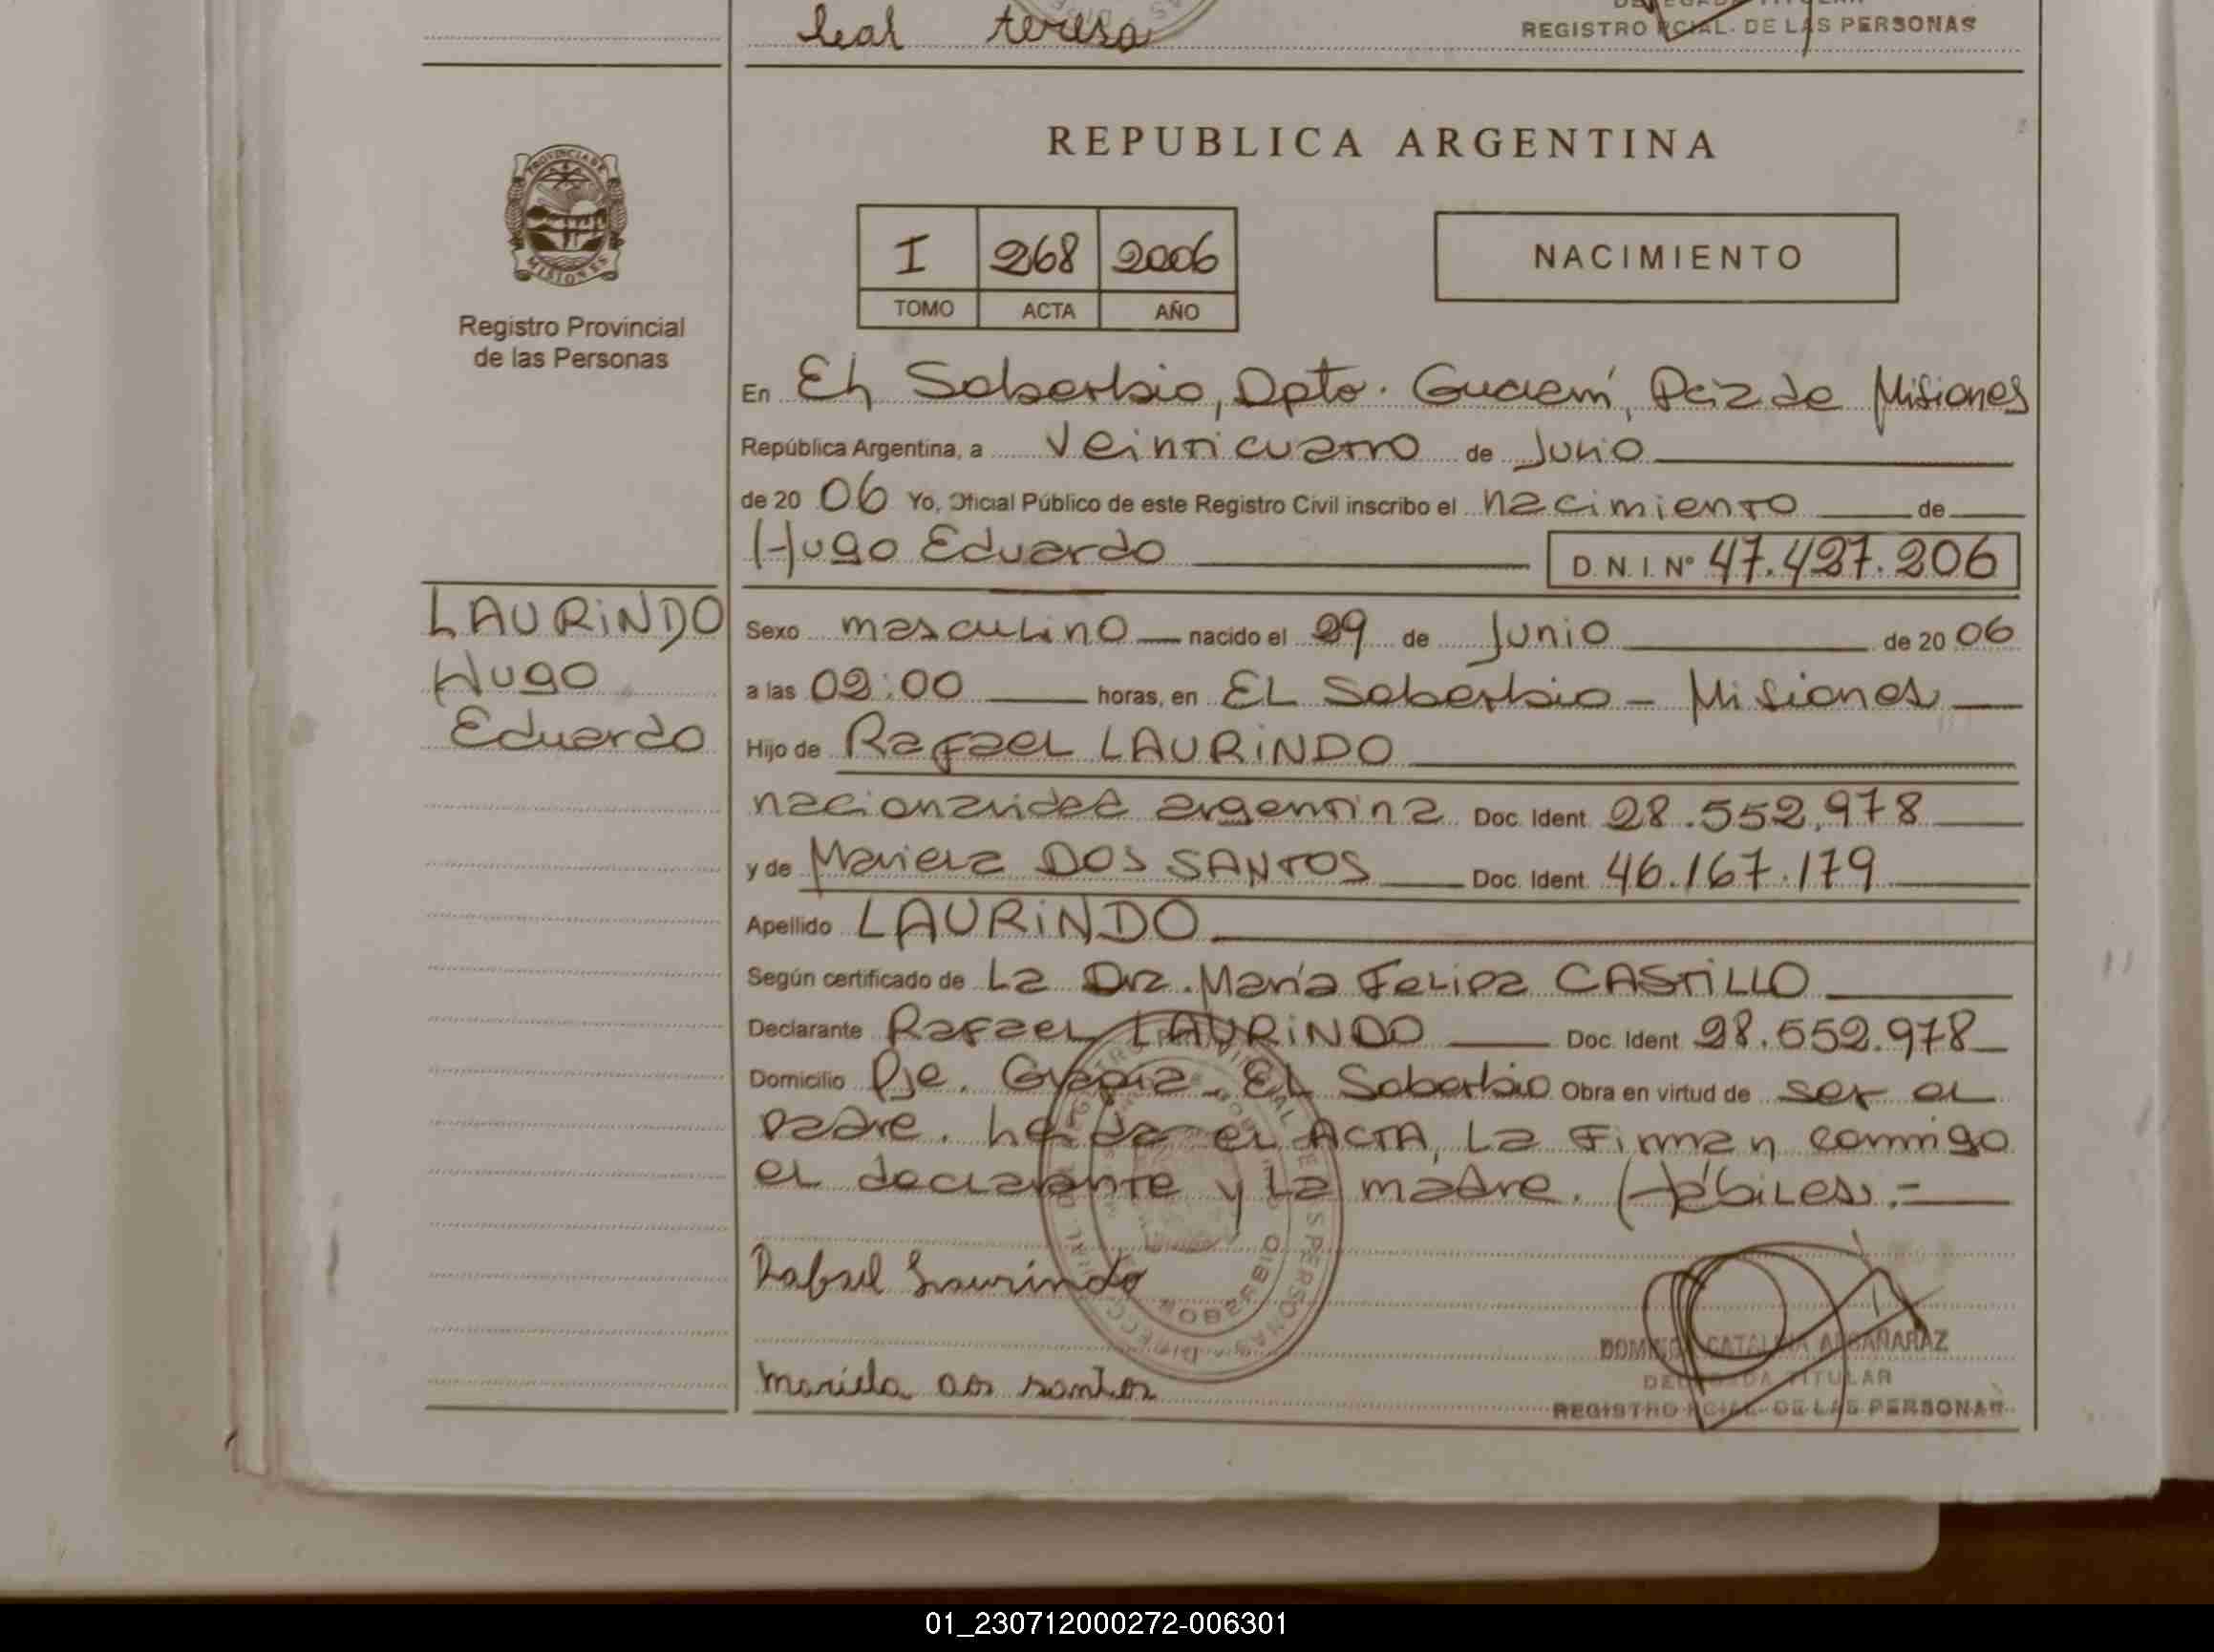 leal teresa
REGISTRO PCIAL. DE LAS PERSONAS
REPUBLICA ARGENTINA
PROVINCIA DE
MISIONES
Registro Provincial
de las Personas
I 268 2006
TOMO ACTA AÑO
NACIMIENTO
En EL Soberbio, Dpto. Guaraní, Pcia de Misiones
República Argentina, a Veinticuatro de Julio
de 20 06 Yo, Oficial Público de este Registro Civil inscribo el nacimiento de
Hugo Eduardo D.N.I. Nº 47.427.206
LAURINDO
Hugo
Eduardo
Sexo masculino nacido el 29 de Junio de 20 06
a las 02:00 horas, en EL Soberbio - Misiones
Hijo de Rafael LAURINDO
nacionalidad argentina Doc. Ident. 28.552.978
y de Mariela DOS SANTOS Doc. Ident. 46.167.179
Apellido LAURINDO
Según certificado de La Dra. María Felipa CASTILLO
Declarante Rafael LAURINDO Doc. Ident. 28.552.978
Domicilio Pje. Guapia - EL Soberbio Obra en virtud de ser el
padre. Leída el ACTA, La Firman conmigo
el declarante y La madre. Hábiles.-
Rafael Laurindo
SOBERBIO
mariela dos santos
DOMINGA CATALINA ARGAÑARAZ
DELEGADA TITULAR
REGISTRO PCIAL. DE LAS PERSONAS
01_230712000272-006301